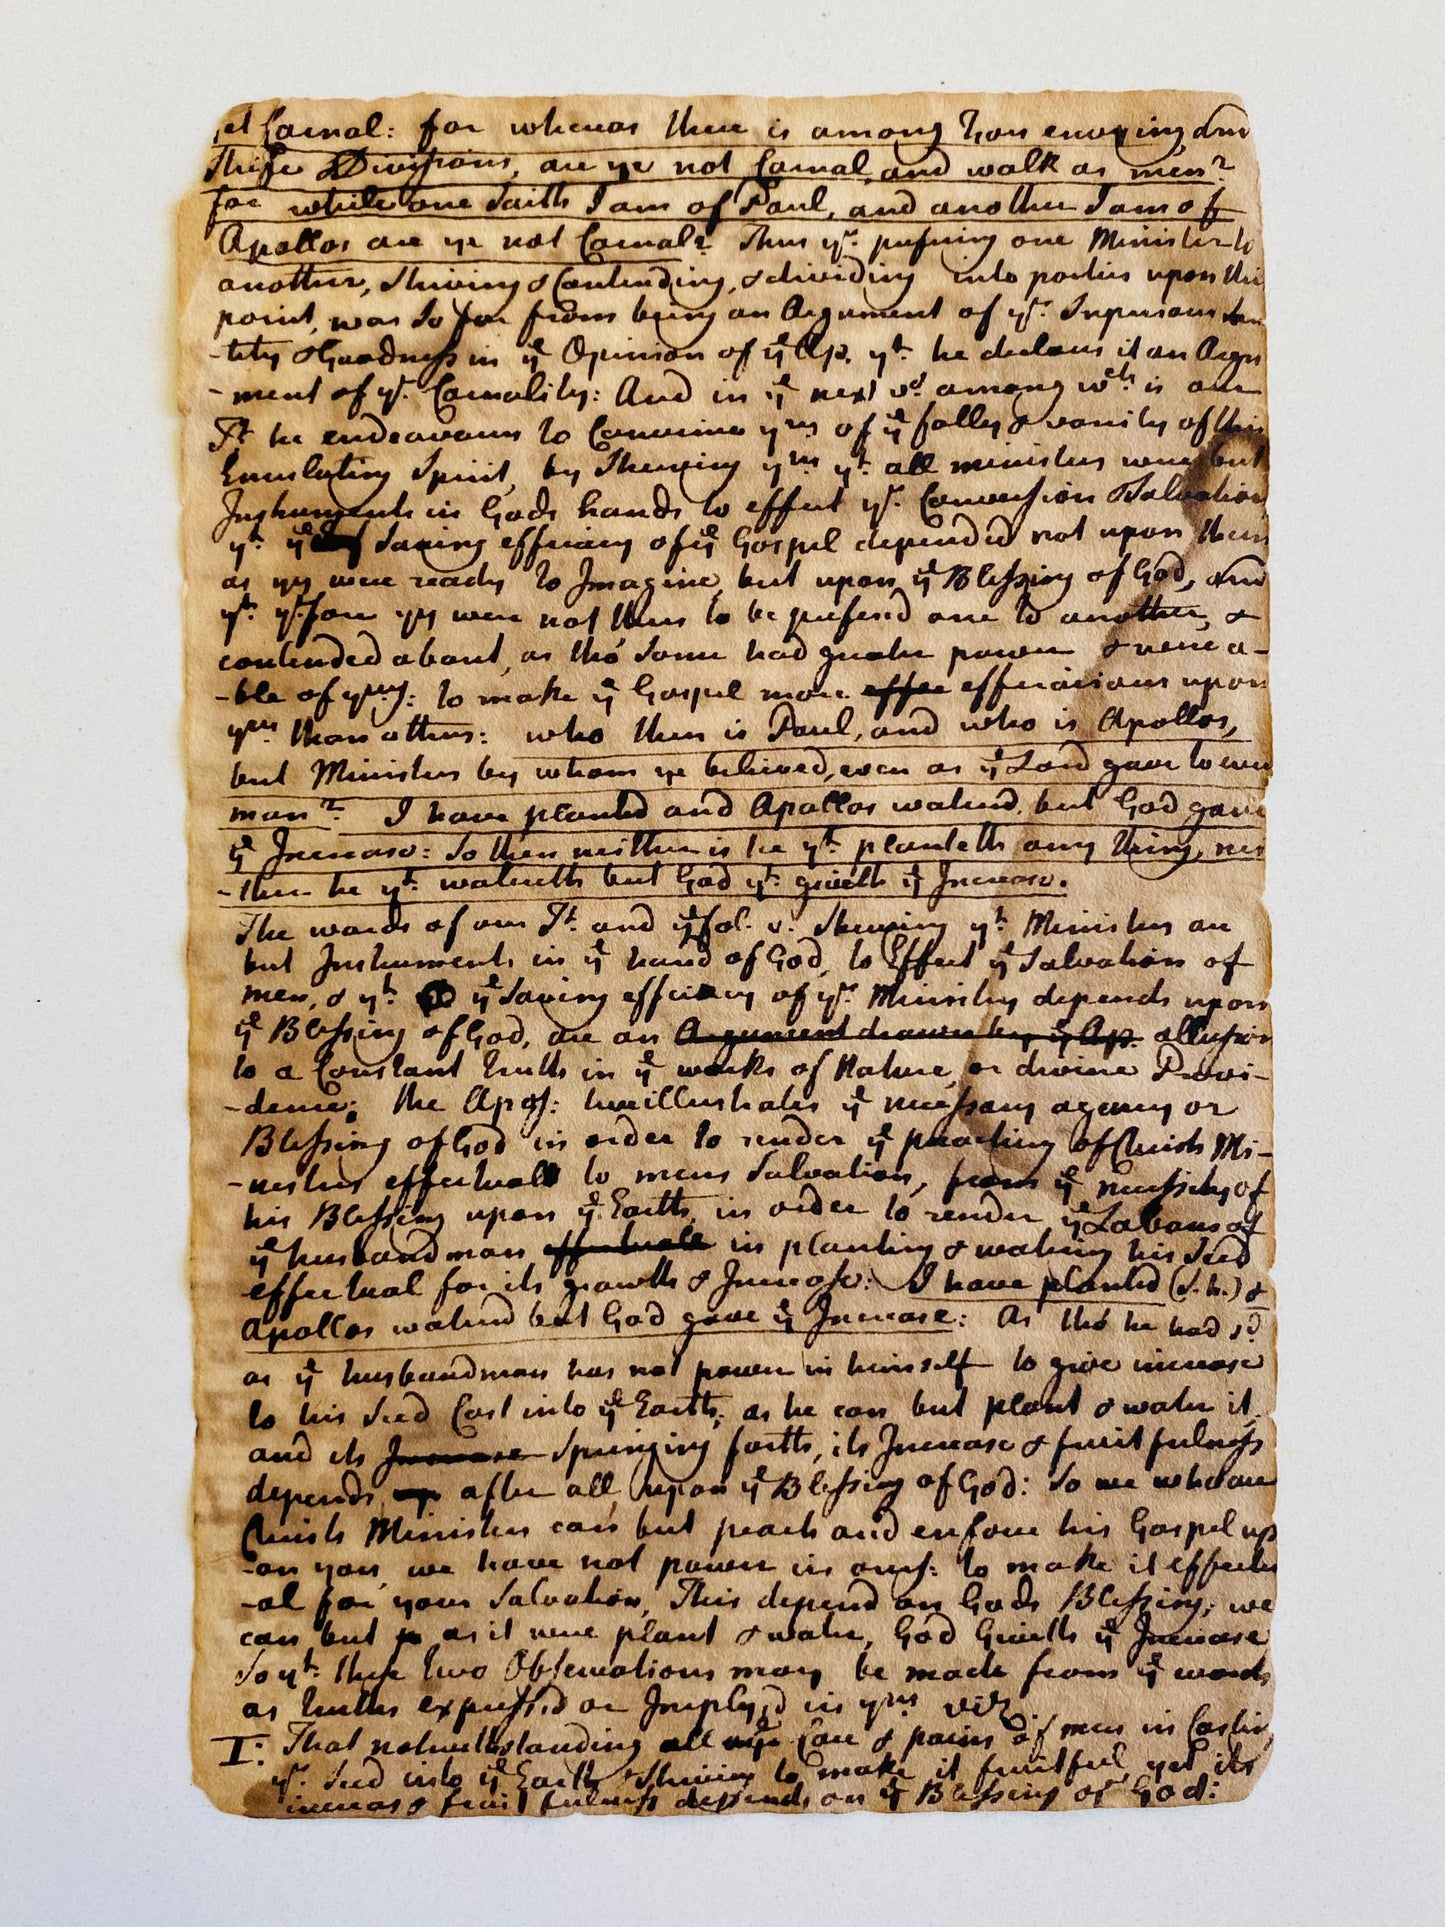 yet Carnal: for whereas there is among You envying and
Strife & Divisions, are ye not Carnal, and walk as men?
for while one Saith I am of Paul, and another I am of
Apollos are ye not Carnal? Thus yr. prefering one Minister to
another, striving & Contending, & dividing into parties upon this
point, was so far from being an Argument of yr.
-tity & Goodness in ye Opinion of ye Ap. yt. he declares it an Argu
-ment of yr. Carnality: And in ye next vs among wch is our
Tt. he endeavours to Convince ym of ye folly & vanity of this
Emulating Spirit, by Shewing ym yt. all ministers were but
Instruments in Gods hands to effect yr. Conversion & Salvation
yt. ye Saving efficacy of ye Gospel depended not upon them
as yy were ready to Imagine, but upon ye Blessing of God, and
yt. yrfore yy were not thus to be prefered one to another, &
contended about, as tho' some had greater power & were a-
-ble of ymS: to make ye Gospel more effec efficacious upon
ym than others: who then is Paul, and who is Apollos,
but Ministers by whom ye believed, even as ye Lord gave to every
man? I have planted and Apollos watered, but God gave
ye Increase: So then neither is he yt. planteth any thing, nei
-ther he yt. watereth but God yt. giveth ye Increase.
The words of our Tt. and ye fol. v. Shewing yt. Ministers are
but Instruments in ye hand of God, to Effect ye Salvation of
men, & yt. ye Saving efficacy of yr. Ministry depends upon
ye Blessing of God, are an Argument drawn by ye Ap. allusion
to a Constant truth in ye works of Nature, or divine Provi-
-dence; the Apos: here illustrates ye necessary agency or
Blessing of God in order to render ye preaching of Christs Mi-
-nisters effectual to mens Salvation, from ye necessity of
his Blessing upon ye Earth, in order to render ye Labours of
ye husbandman effectuall in planting & watering his Seed
effectual for its growth & Increase: I have planted (s.h.) &
Apollos watered but God gave ye Increase: As tho' he had sd.
as ye husbandman has not power in himself to give increase
to his Seed Cast into ye Earth; as he can but plant & water it,
and its Increase Springing forth, its Increase & fruitfulness
depends up after all, upon ye Blessing of God: So we who are
Christs Ministers can but preach and enforce his Gospel up
-on you, we have not power in ours: to make it effectu
-al for your Salvation, This depend on Gods Blessing; we
can but p as it were plant & water, God Giveth ye Increase
So yt. these two Observations may be made from ye words
as truths expressed or Imply'd in ym viz.
I: That notwithstanding all ye Care & pains of men in Casting
yr. Seed into ye Earth & Striving to make it fruitful, yet its
increase & fruitfulness depends on ye Blessing of God: